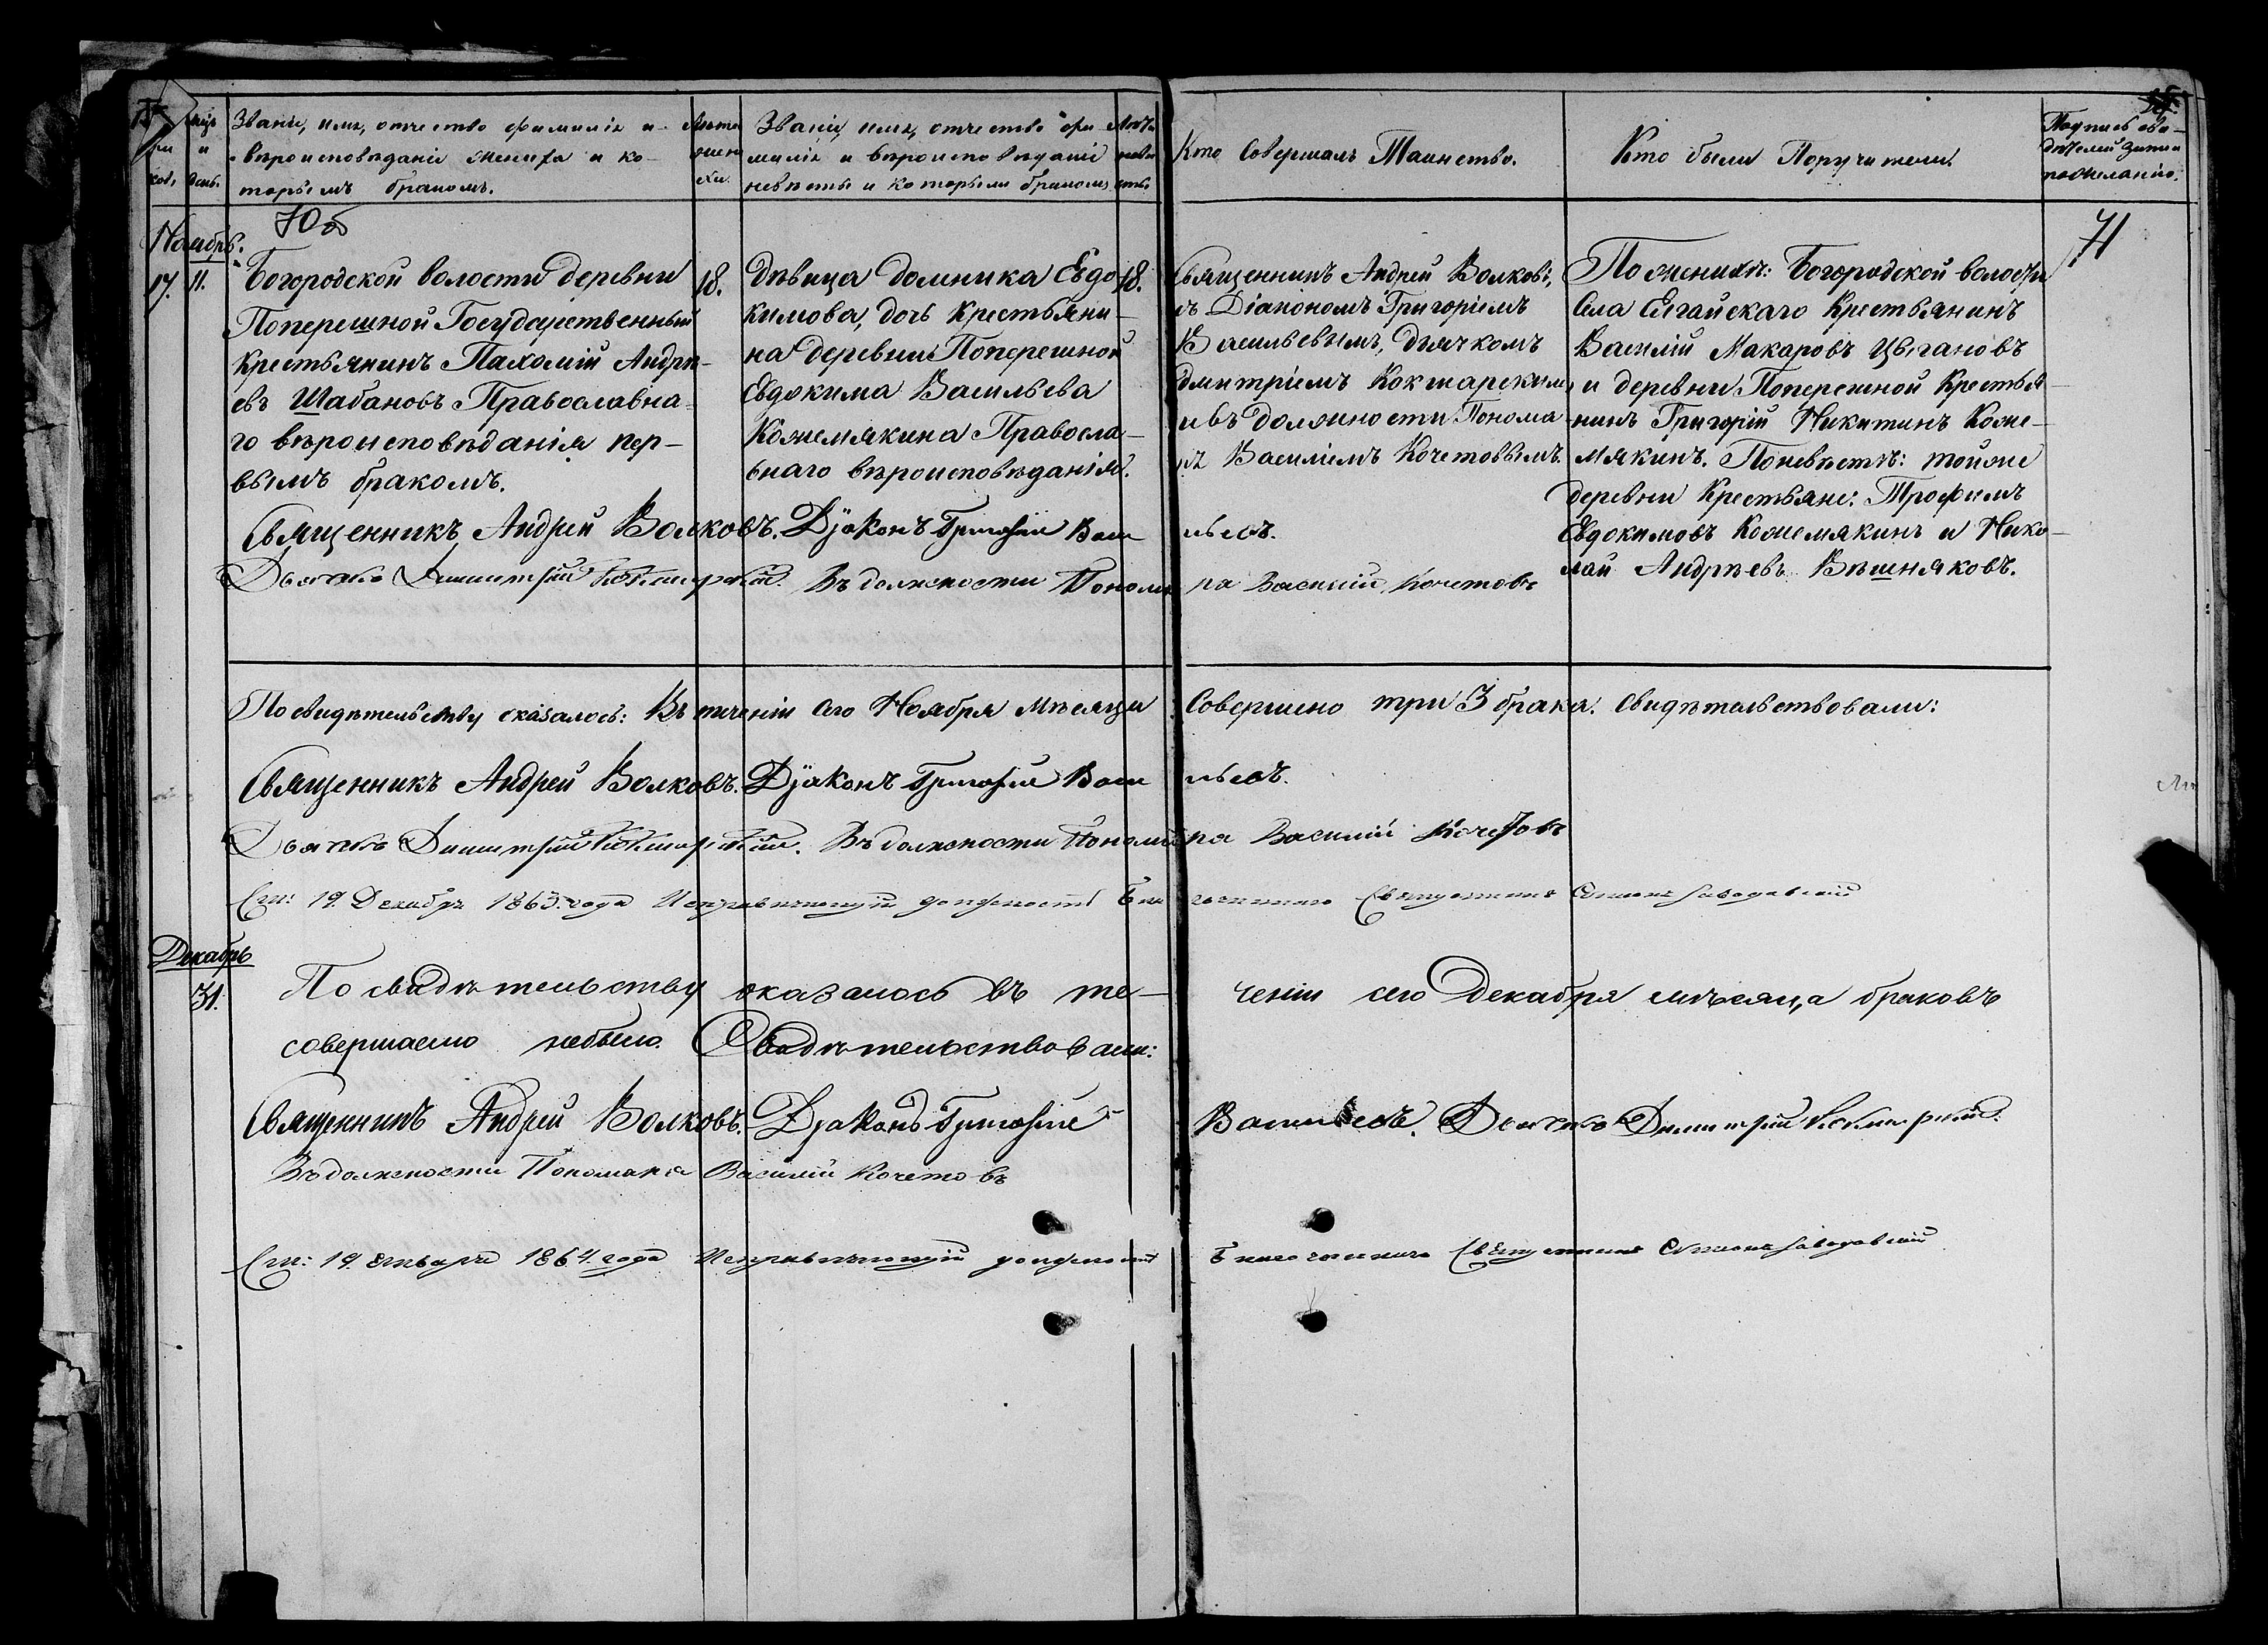 Звание, имя, отчество фамилія и
вѣроисповѣданіе жениха и ко-
торымъ бракомъ.
Званіе, имя, отчество фа-
милія и вѣроисповѣданіе
невѣсты и которымъ бракомъ
Кто Совершалъ Таинство.
Кто были Поручители.
Подпись сви-
дѣтелей записи
по желанію.
70об
71
Ноябрь.
17.
11.
Богородской волости деревни
Поперешной Государственный
крестьянинъ Пахомій Андрѣ-
евъ Шабановъ Православна-
го вѣроисповѣданія пер-
вымъ бракомъ.
18.
Дѣвица Домника Евдо
кимова, дочь Крестьяни-
на деревни Поперешной
Евдокима Васильева
Кожемякина Правосла-
внаго вѣроисповѣданія.
18.
Священникъ Андрей Волковъ,
съ Діакономъ Григоріемъ
Васильевымъ, дьячкомъ
Дмитріемъ Кокшарскимъ
и въ должности Понома
ря Василіемъ Кочетовымъ.
По женихѣ: Богородской волости
Села Елгайскаго Крестьянинъ
Василій Макаровъ Цыгановъ
и деревни Поперешной Крестья-
нинъ Григорій Никитинъ Коже-
мякинъ. По невѣстѣ: тойже
деревни Крестьяне: Трофимъ
Евдокимовъ Кожемякинъ и Нико-
лай Андрѣевъ Вѣшняковъ.
Священникъ Андрей Волковъ. Дїаконъ Григорій Василь­евъ.
Дьячекъ Димитрій Кокшарскій. Въ должности Пономаря Василій Кочетовъ
По свидѣтельству оказалось: Въ теченіи сего Ноября Мѣсяца Совершено три 3 брака. Свидѣтельствовали:
Священникъ Андрей Волковъ. Дїаконъ Григорій Васильевъ.
Дьячекъ Димитрій Кокшарскій. Въ должности Пономаря Василій Кочетовъ
19 Декабря 1863 года Исправляющій должность Благочиннаго Священникъ Симеонъ
Декабрь
31.
По свидѣтельству оказалось въ те- ченіи сего Декабря мѣсяца браковъ
совершаемо небыло. Свидѣтельствовали:
Священникъ Андрей Волковъ. Дїаконъ Григорій Васильевъ. Дьячекъ Димитрій Кокшарскій.
Въ должности Пономаря Василій Кочетовъ
19 Января 1864 года Исправляющій должность Благочиннаго Священникъ Симеонъ